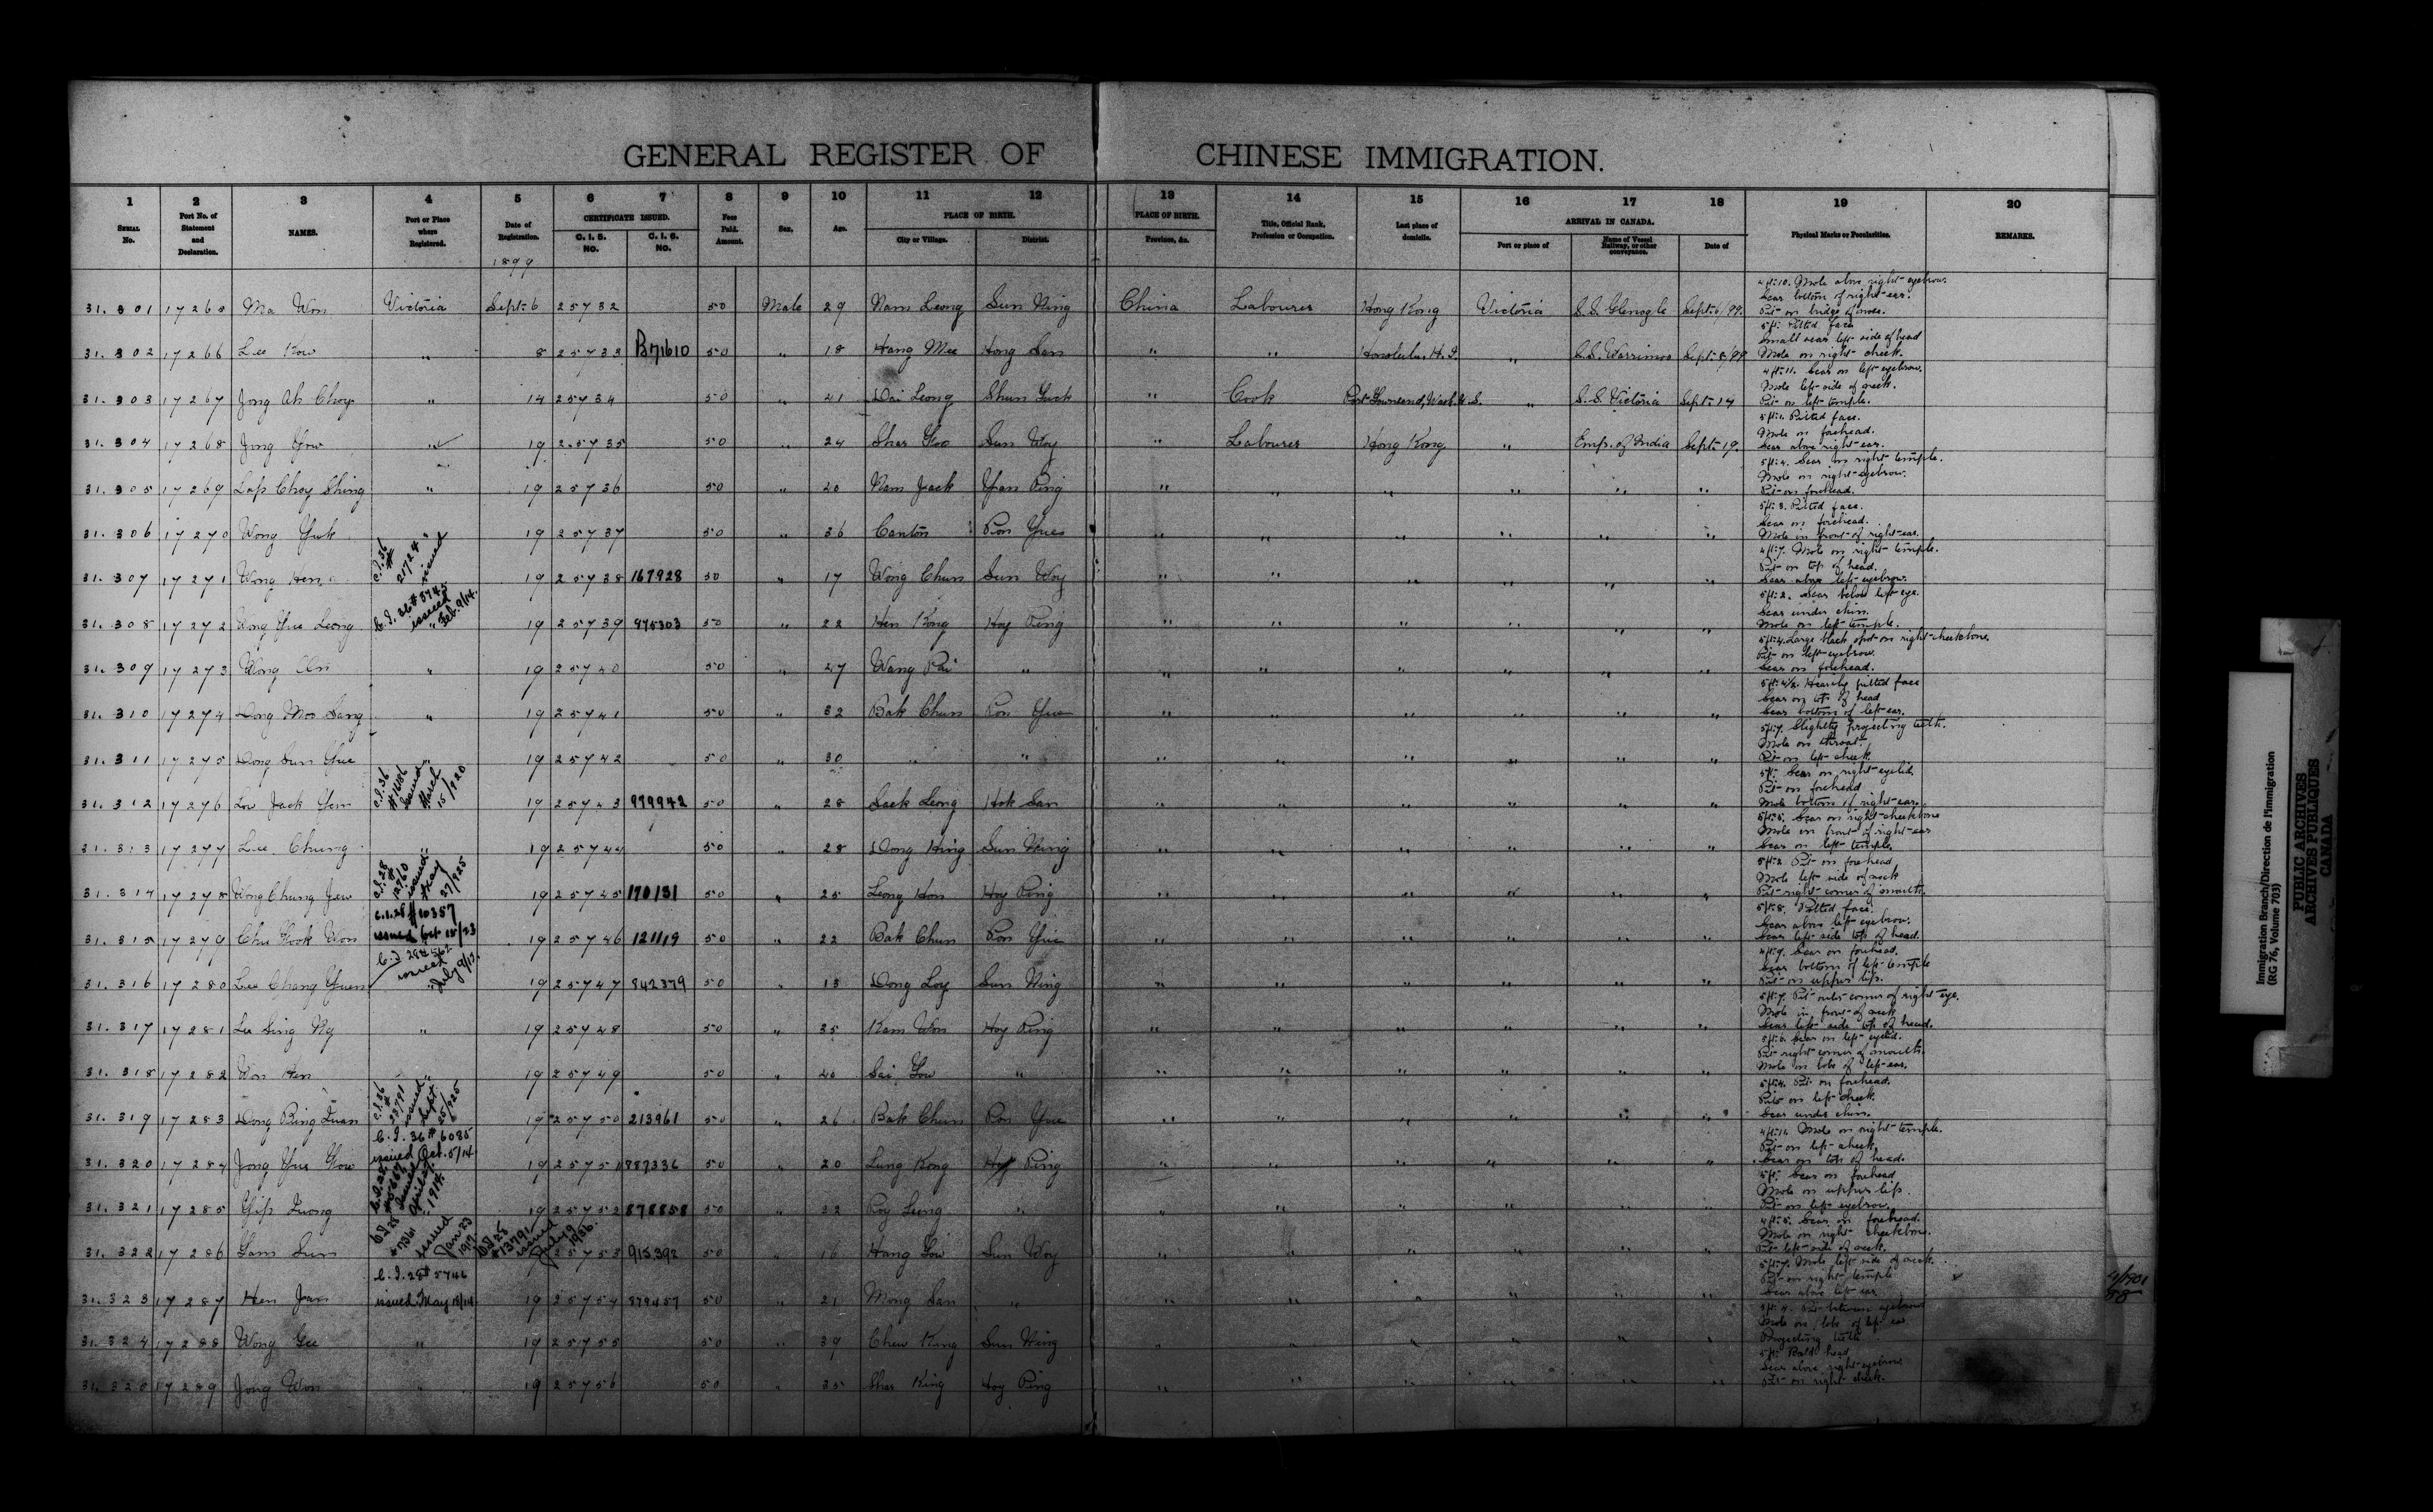 GENERAL REGISTER OF CHINESE IMMIGRATION.
1 2 3 4 5 6 7 8 9 10 11 12 13 14 15 16 17 18 19 20
SERIAL No. Port No. of Statement and Declaration. NAMES. Port or Place where Registered. Date of Registration. CERTIFICATE ISSUED. C. I. 5. NO. C. I. 5. NO. Fees Paid. Amount. Sex. Age. PLACE OF BIRTH. City or Village. District. PLACE OF BIRTH. Province, &c. Title, Official Rank, Profession or Occupation. Last place of domicile. ARRIVAL IN CANADA. Port or place of Name of Vessel Railway, or other conveyance. Date of Physical Marks or Peculiarities. REMARKS.
1899
31.301 17265 Ma Won Victoria Sept. 6 25732 50 Male 29 Nam Leong Sun Ning China Labourer Hong Kong Victoria S.S. Glenogle Sept. 6/99. 4 ft. 10. Mole above right eyebrow.
Scar bottom of right ear.
Pit on bridge of nose.
31.302 17266 Lee Kow " 8 25733 B71610 50 " 18 Hang Mee Hong San " " Honolulu H.I. " S.S. Warrimoo Sept. 8/99 5 ft. Pitted face
Small scar left side of head
Mole on right cheek.
31.303 17267 Jong Ah Choy " 14 25734 50 " 41 Dai Leong Shun Guck " Cook Port Townsend, Wash. U.S. " S.S. Victoria Sept. 14 4 ft. 11. Scar on left eyebrow.
Mole left side of neck.
Pit on left temple.
31.304 17268 Jong Yow " 19 25735 50 " 24 Shar Goo Sun Woy " Labourer Hong Kong " Emp. of India Sept. 19. 5 ft. 1. Pitted face.
Mole on forehead.
Scar above right ear.
31.305 17269 Lap Choy Shing " 19 25736 50 " 20 Nam Jack Yan Ping " " " " " " 5 ft. 4. Scar on right temple.
Mole on right eyebrow.
Pit on forehead.
31.306 17270 Wong Yuk " 19 25737 50 " 36 Canton Pon Yue " " " " " " 5 ft. 3. Pitted face.
Scar on forehead.
Mole in front of right ear.
31.307 17271 Wong Hen C.I. 36 # 21724 issued " 19 25738 167928 50 " 17 Wong Chun Sun Woy " " " " " " 4 ft. 7. Mole on right temple.
Pit on top of head.
Scar above left eyebrow.
31.308 17272 Wong Yue Leong C.I. 36 # 3745 issued Feb. 9/14. " 19 25739 975303 50 " 22 Hen Kong Hoy Ping " " " " " " 5 ft. 2. Scar below left eye.
Scar under chin.
Mole on left temple.
31.309 17273 Wong On " 19 25740 50 " 47 Wang Pai " " " " " " " 5 ft. 4. Large black spot on right cheekbone.
Pit on left eyebrow.
Scar on forehead.
31.310 17274 Dong Moo Sang " 19 25741 50 " 32 Bak Chun Pon Yue " " " " " " 5 ft. 4½. Heavily pitted face
Scar on top of head
Scar bottom of left ear.
31.311 17275 Dong Sun Yue " 19 25742 50 " 30 " " " " " " " " 5 ft. 7. Slightly projecting teeth.
Mole on throat.
Pit on left cheek.
31.312 17276 Low Jack Yem C.I. 36 # 1686 issued March 15/920 " 19 25743 979942 50 " 28 Sack Leong Hok San " " " " " " 5 ft. Scar on right eyelid
Pit on forehead
Mole bottom of right ear.
31.313 17277 Lee Chung " 19 25744 50 " 28 Dong Hing Sun Ning " " " " " " 5 ft. 5. Scar on right cheekbone
Mole in front of right ear
Scar on left temple.
31.314 17278 Wong Chung Jew C.I. 28 # 12760 issued May 27/925 19 25745 170131 50 " 25 Leong Hon Hoy Ping " " " " " " 5 ft. 2. Pit on forehead
Mole left side of neck
Pit right corner of mouth.
31.315 17279 Chu Kook Won C.I. 28 # 10357 issued Oct 18/23 19 25746 121119 50 " 22 Bak Chun Pon Yue " " " " " " 5 ft. 8. Pitted face.
Scar above left eyebrow.
Scar left side top of head.
31.316 17280 Lee Chang Yuen issued July 9/13. " 19 25747 842379 50 " 13 Dong Loy Sun Ning " " " " " " 4 ft. 9. Scar on forehead.
Scar bottom of left temple
Pit on upper lip.
31.317 17281 Lee Sing Ng " 19 25748 50 " 35 Kam Won Hoy Ping " " " " " " 5 ft. 7. Pit outer corner of right eye.
Mole in front of neck
Scar left side top of head.
31.318 17282 Won Hen " 19 25749 50 " 40 Sai Gow " " " " " " " Scar on left eyelid.
Pit right corner of mouth.
Mole on lobe of left ear.
31.319 17283 Dong Bing Luan C.I. 36 # 23791 issued Sept. 25/925 " 19 25750 213961 50 " 26 Bak Chun Pon Yue " " " " " " 5 ft. 4. Pit on forehead.
Pit on left cheek.
Scar under chin.
31.320 17284 Jong Yue Kow C.I. 36 # 6085 issued Oct. 5/14. 19 25751 887336 50 " 20 Lung Kong Hoy Ping " " " " " " 4 ft. 11. Mole on right temple.
Pit on left cheek.
Scar on top of head.
31.321 17285 Yip Luong C.I. 28 issued April 27, 1914. 19 25752 878858 50 " 22 Poy Lung " " " " " " " 5 ft. Scar on forehead
Mole on upper lip.
Pit on left eyebrow.
31.322 17286 Lam Sun C.I. 28 # 7361 issued Jan. 23 1917 C.I. 28 # 13791 issued July 19 1936. 25753 915392 50 " 16 Hang Gow Sun Woy " " " " " " 4 ft. 5. Scar on forehead.
Mole on right cheekbone.
Pit left side of neck.
31.323 17287 Hen Jan C.I. 28 # 5746 issued May 18/14 19 25754 879457 50 " 21 Mong San " " " " " " " 5 ft. 7. Mole left side of neck.
Pit on right temple
Scar above left ear
31.324 17288 Wong Gee " 19 25755 50 " 39 Chew King Sun Ning " " " " " " Pit between eyebrows
Mole on lobe of left ear
Projecting teeth
31.325 17289 Jong Won " 19 25756 50 " 35 Shar King Hoy Ping " " " " " " 5 ft. Bald head
Scar above right eyebrow
Pit on right cheek.
Immigration Branch/Direction de l'immigration
(RG 76, Volume 703)
PUBLIC ARCHIVES
ARCHIVES PUBLIQUES
CANADA